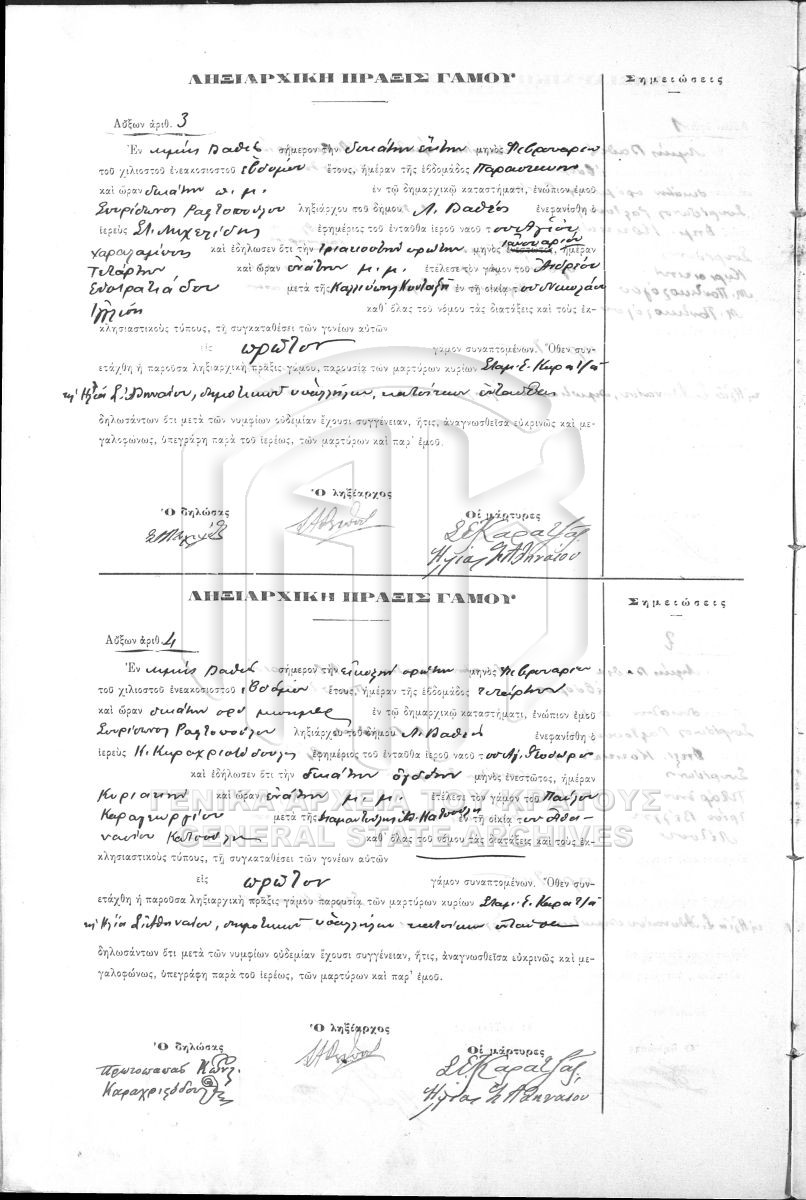 ΛΗΞΙΑΡΧΙΚΗ ΠΡΑΞΙΣ ΓΑΜΟΥ
Σημειώσεις
Αὔξων ἀριθ. 3
Ἐν σήμερον τὴν δεκάτην ἕκτην μηνὸς Φεβρουαρίου
τοῦ χιλιοστοῦ ἐνεακοσιοστοῦ ἑβδόμου ἔτους, ἡμέραν τῆς ἑβδομάδος Παρασκευήν
καὶ ὥραν δεκάτην π. μ. ἐν τῷ δημαρχικῷ καταστήματι, ἐνώπιον ἐμοῦ
Σπυρίδωνος ληξιάρχου τοῦ δήμου Λ. Βαθέος ἐνεφανίσθη ὁ
ἱερεὺς ἐφημέριος τοῦ ἐνταῦθα ἱεροῦ ναοῦ τοῦ Ἁγίου
Χαραλάμπους καὶ ἐδήλωσεν ὅτι τὴν τριακοστὴν πρώτην μηνὸς ἐνεστῶτος Ἰανουαρίου, ἡμέραν
Τετάρτην καὶ ὥραν ἐνάτην μ. μ. ἐτέλεσε τὸν γάμον τοῦ Ἀνδρέου
Εὐστρατιάδου μετὰ τῆς Καλλιόπης ἐν τῇ οἰκίᾳ τοῦ Νικολάου
καθ' ὅλας τοῦ νόμου τὰς διατάξεις καὶ τοὺς ἐκ-
κλησιαστικοὺς τύπους, τῇ συγκαταθέσει τῶν γονέων αὐτῶν
εἰς πρῶτον γάμον συναπτομένων. Ὅθεν συν-
ετάχθη ἡ παροῦσα ληξιαρχικὴ πρᾶξις γάμου, παρουσίᾳ τῶν μαρτύρων κυρίων Σταμ. Ε. Καρατζᾶ
Ἠλία Σ. Ἀθηναίου, δημοτικοῦ ὑπαλλήλου, κατοίκων ἐνταῦθα
δηλωσάντων ὅτι μετὰ τῶν νυμφίων οὐδεμίαν ἔχουσι συγγένειαν, ἥτις, ἀναγνωσθεῖσα εὐκρινῶς καὶ με-
γαλοφώνως, ὑπεγράφη παρὰ τοῦ ἱερέως, τῶν μαρτύρων καὶ παρ' ἐμοῦ.
Ὁ δηλώσας
Ὁ ληξίαρχος
Οἱ μάρτυρες
Σ. Ε. Καρατζᾶς
Ἠλίας Σ. Ἀθηναίου
ΛΗΞΙΑΡΧΙΚΗ ΠΡΑΞΙΣ ΓΑΜΟΥ
Σημειώσεις
Αὔξων ἀριθ. 4
Ἐν σήμερον τὴν εἰκοστὴν πρώτην μηνὸς Φεβρουαρίου
τοῦ χιλιοστοῦ ἐνεακοσιοστοῦ ἑβδόμου ἔτους, ἡμέραν τῆς ἑβδομάδος τετάρτην
καὶ ὥραν δεκάτην πρὸ μεσημβρίας ἐν τῷ δημαρχικῷ καταστήματι, ἐνώπιον ἐμοῦ
Σπυρίδωνος ληξιάρχου τοῦ δήμου Λ. Βαθέος ἐνεφανίσθη ὁ
ἱερεὺς Κ. Καραχριστόδουλος ἐφημέριος τοῦ ἐνταῦθα ἱεροῦ ναοῦ τοῦ Ἁγ. Θεοδώρου
καὶ ἐδήλωσεν ὅτι τὴν δεκάτην ὀγδόην μηνὸς ἐνεστῶτος, ἡμέραν
Κυριακὴν καὶ ὥραν ἐνάτην μ. μ. ἐτέλεσε τὸν γάμον τοῦ Παύλου
Καραγεωργίου μετὰ τῆς ἐν τῇ οἰκίᾳ τοῦ Ἀθα-
νασίου καθ' ὅλας τοῦ νόμου τὰς διατάξεις καὶ τοὺς ἐκ-
κλησιαστικοὺς τύπους, τῇ συγκαταθέσει τῶν γονέων αὐτῶν
εἰς πρῶτον γάμον συναπτομένων. Ὅθεν συν-
ετάχθη ἡ παροῦσα ληξιαρχικὴ πρᾶξις γάμου παρουσίᾳ τῶν μαρτύρων κυρίων Σταμ. Ε. Καρατζᾶ
Ἠλία Σ. Ἀθηναίου, δημοτικοῦ ὑπαλλήλου κατοίκων ἐνταῦθα
δηλωσάντων ὅτι μετὰ τῶν νυμφίων οὐδεμίαν ἔχουσι συγγένειαν, ἥτις, ἀναγνωσθεῖσα εὐκρινῶς καὶ με-
γαλοφώνως, ὑπεγράφη παρὰ τοῦ ἱερέως, τῶν μαρτύρων καὶ παρ' ἐμοῦ.
Ὁ δηλώσας
Ὁ ληξίαρχος
Οἱ μάρτυρες
Πρωτοπαπας
Σ. Ε. Καρατζᾶς
Ἠλίας Σ. Ἀθηναίου
ΓΕΝΙΚΑ ΑΡΧΕΙΑ ΤΟΥ ΚΡΑΤΟΥΣ
GENERAL STATE ARCHIVES